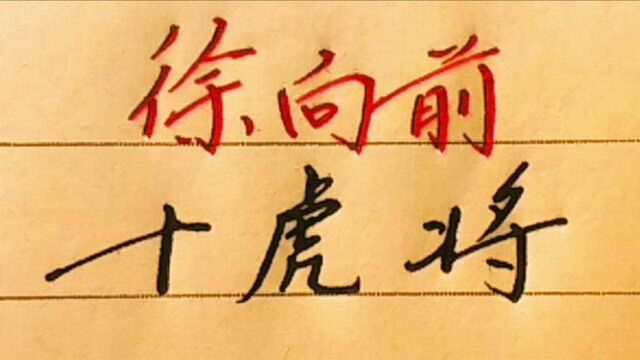 徐向前
十虎将